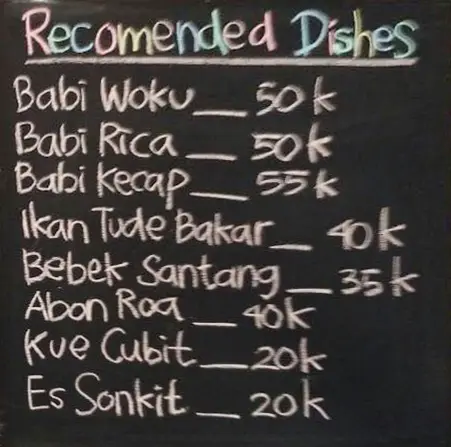 Recomended Dishes
Babi Woku__ 50k
Babi Rica__ 50k
Babi Kecap__ 55k
Ikan Tude Bakar__ 40k
Bebek Santang__ 35k
Abon Roa__ 40k
Kue Cubit__20k
Es Sonkit__20k